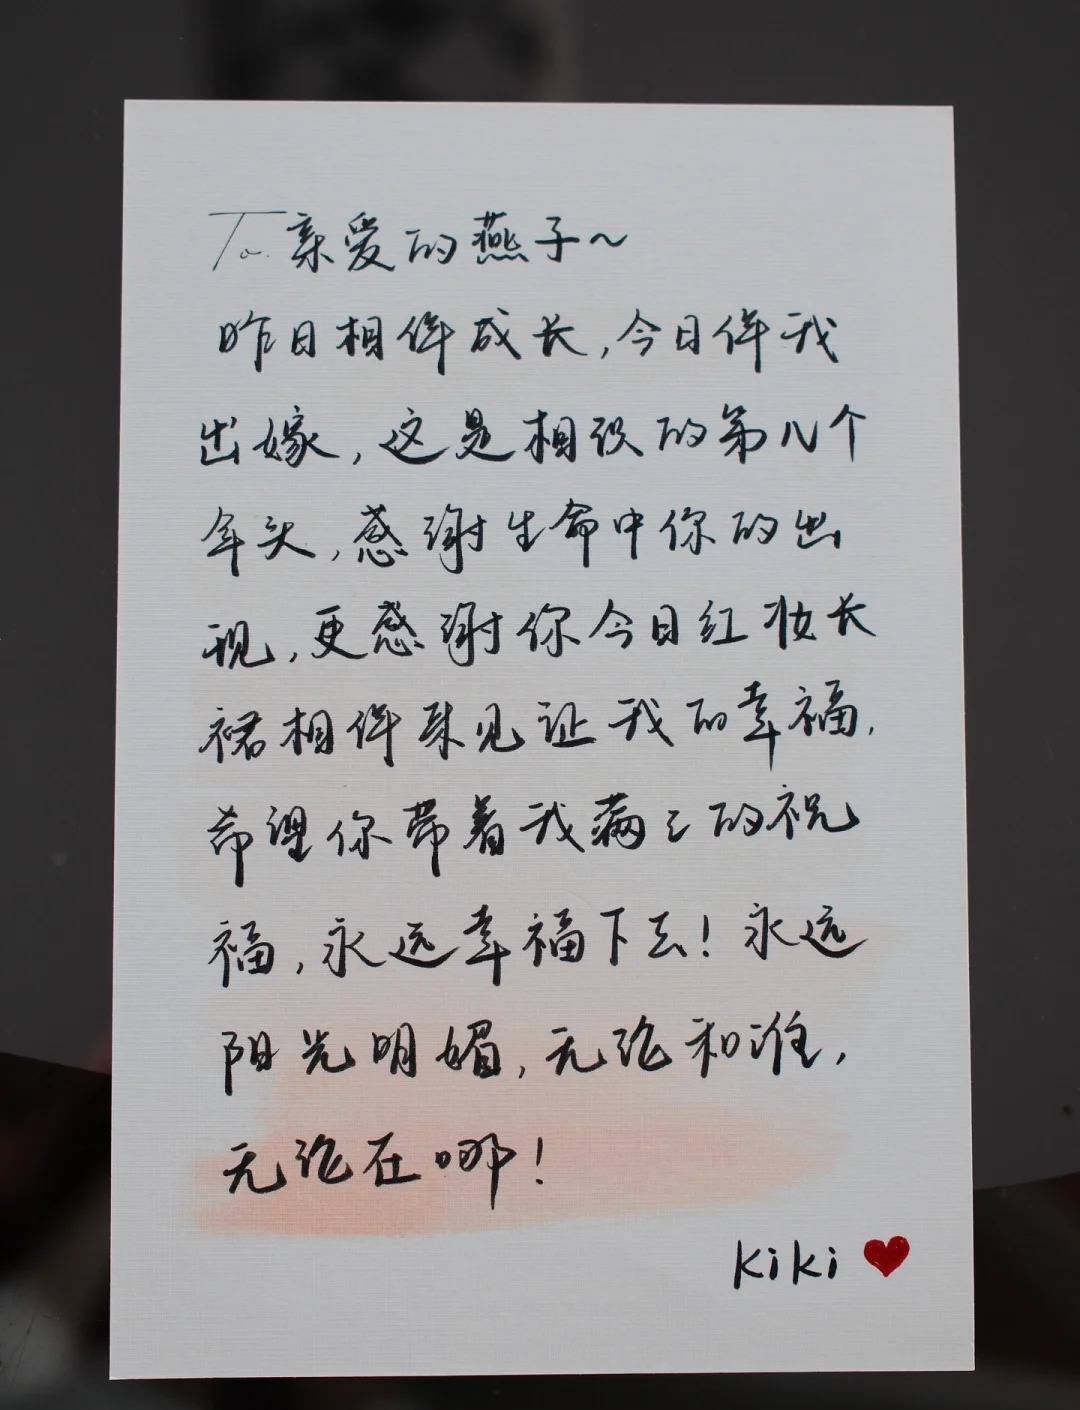 To 亲爱的燕子~
昨日相伴成长,今日伴我
出嫁,这是相识的第几个
年头,感谢生命中你的出
现,更感谢你今日红妆长
裙相伴来见证我的幸福,
希望你带着我满满的祝
福,永远幸福下去!永远
阳光明媚,无论和谁,
无论在哪!
kiki